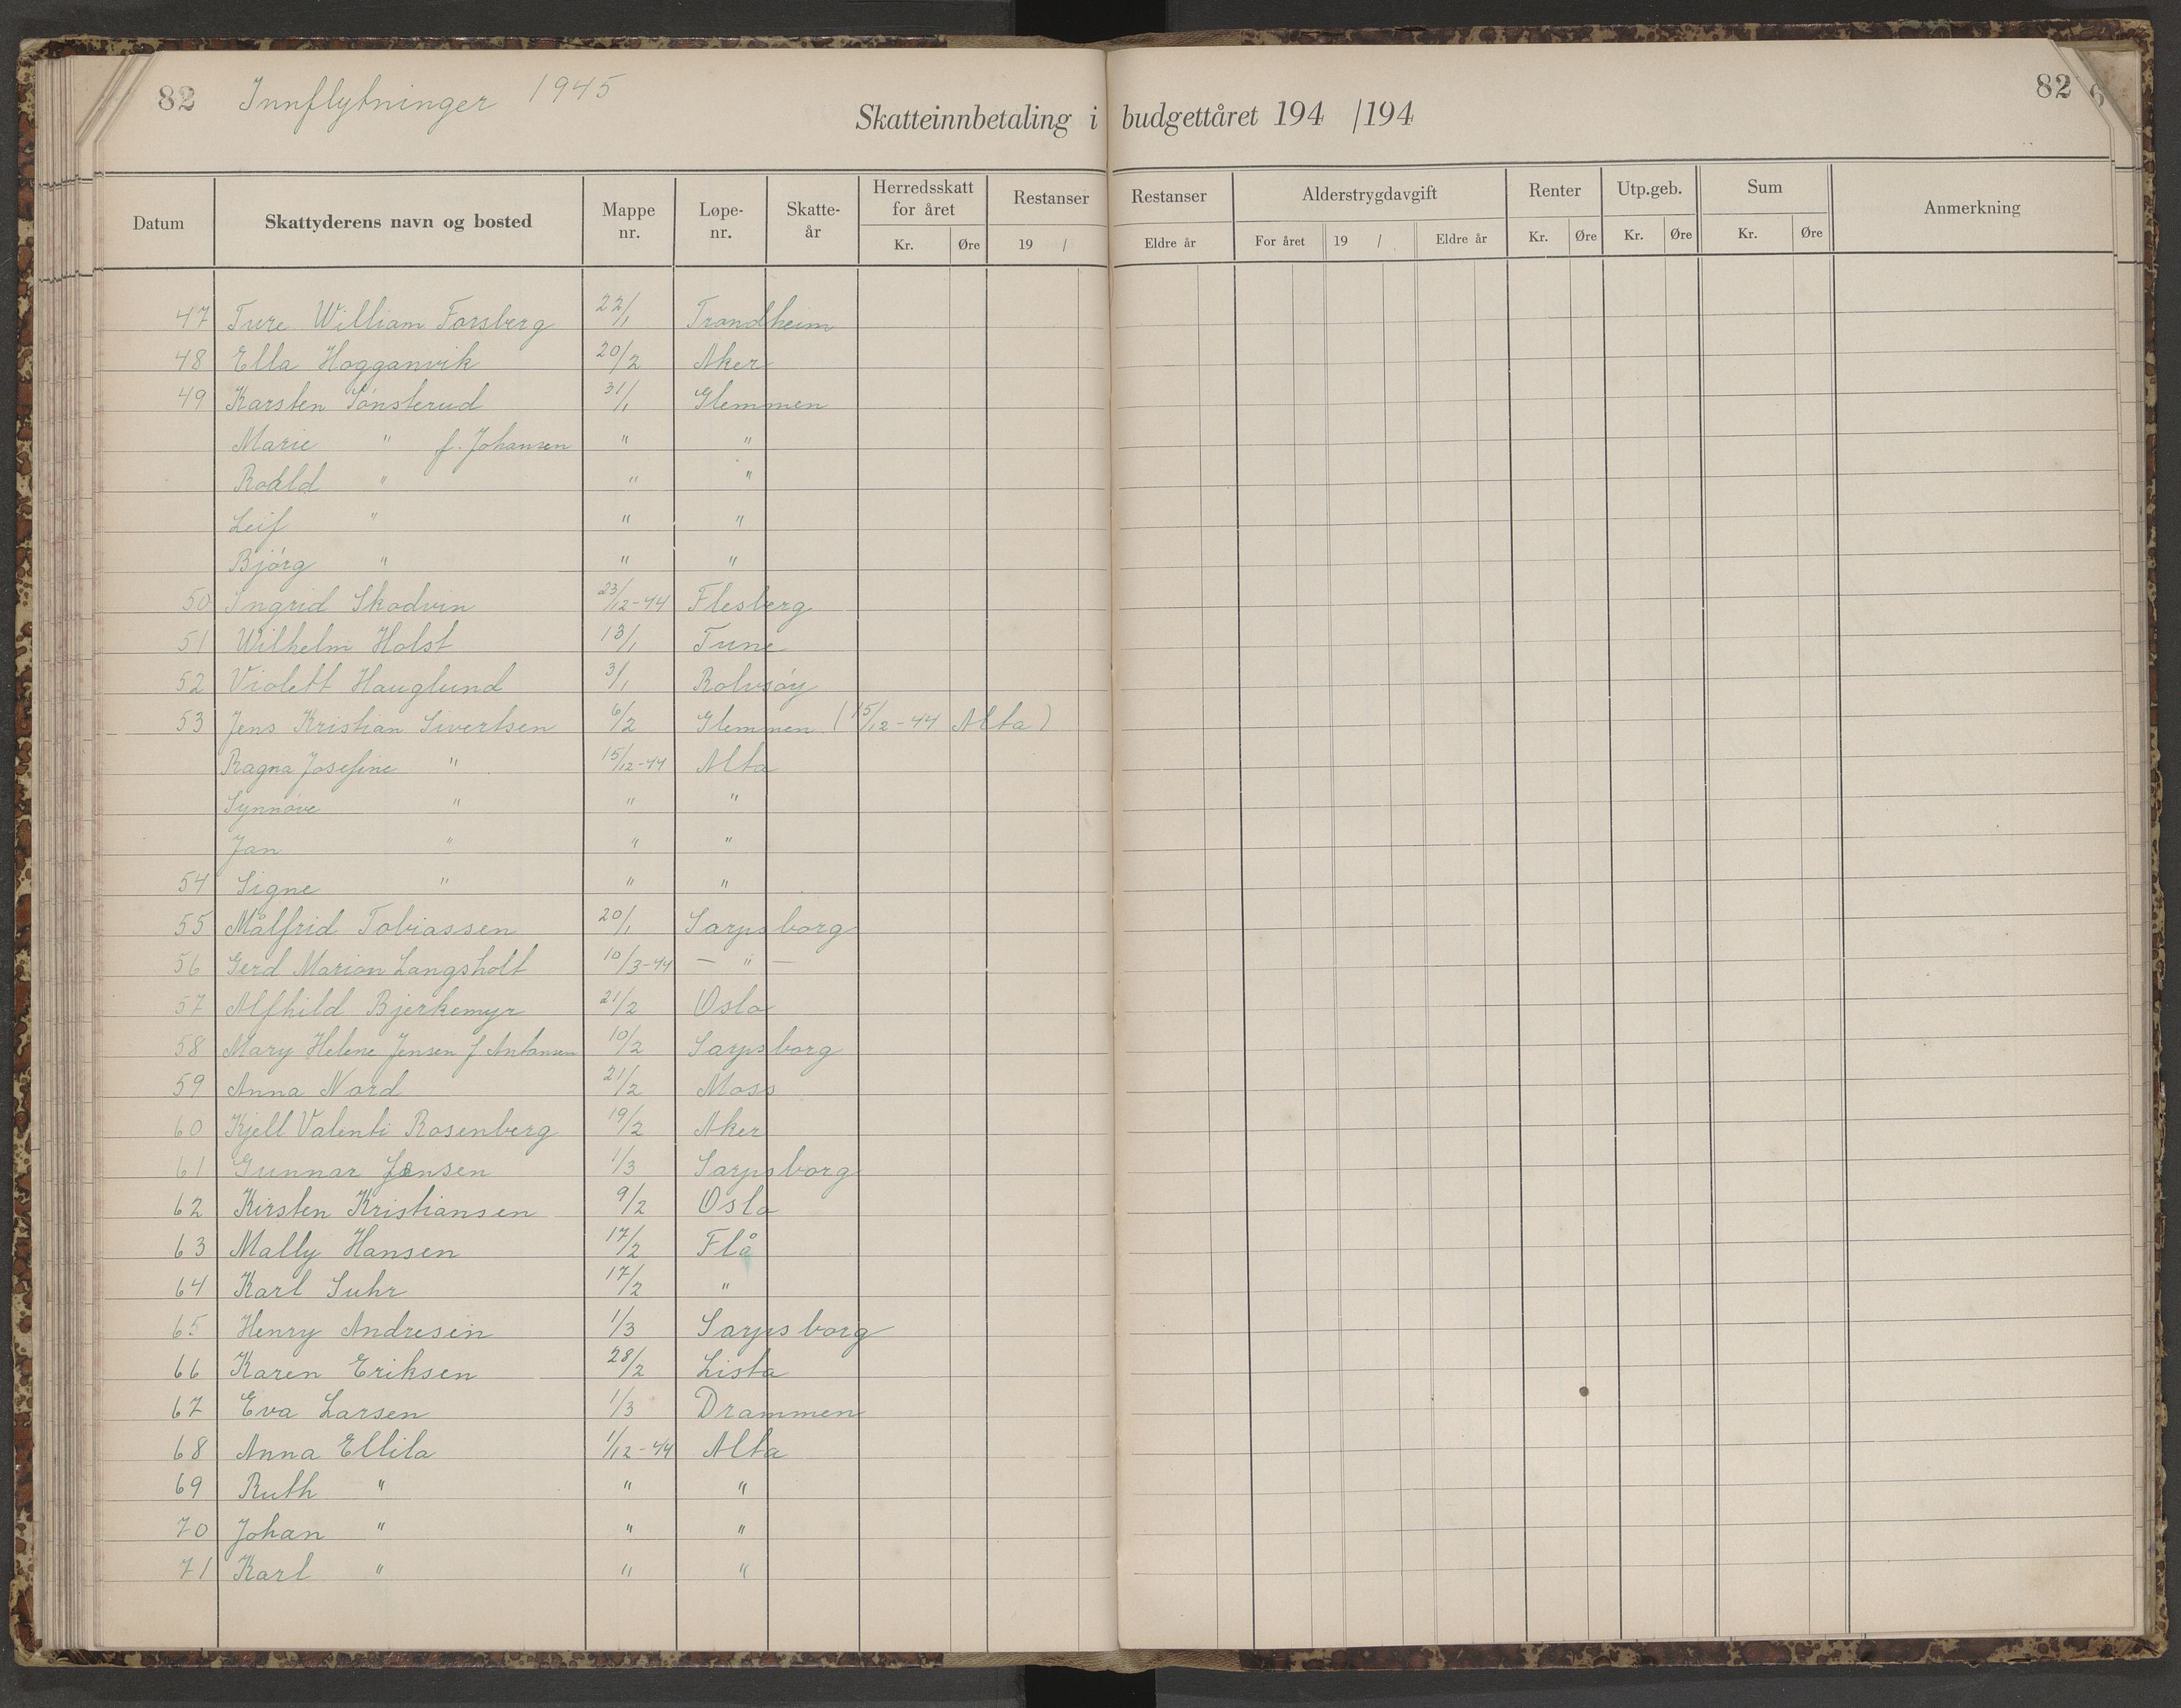 82 Innflytninger 1945
82
Skatteinnbetaling i budgettåret 194 /194
Datum Skattyderens navn og bosted Mappe nr. Løpe-nr. Skatte-år Herredsskatt for året Kr. Øre Restanser 19 / Restanser Eldre år Alderstrygdavgift For året 19 / Eldre år Renter Kr. Øre Utp.geb. Kr. Øre Sum Kr. Øre Anmerkning
47 Ture William Forsberg 22/1 Trondheim
48 Ella Hogganvik 20/2 Aker
49 Karsten Tønsterud 31/1 Glemmen
Marie " f. Johansen " "
Roald " " "
Leif " " "
Bjørg " " "
50 Ingrid Skodvin 23/12-44 Flesberg
51 Wilhelm Holst 13/1 Tune
52 Violett Hauglund 3/1 Rolvsøy
53 Jens Kristian Sivertsen 6/2 Glemmen (15/12-44 Alta)
Ragna Josefine " 15/12-44 Alta
Synnøve " " "
Jan " " "
54 Signe " " "
55 Målfrid Tobiassen 20/1 Sarpsborg
56 Gerd Marion Langsholt 10/3-44 — " —
57 Alfhild Bjerkemyr 21/2 Oslo
58 Mary Helene Jensen f Antonsen 10/2 Sarpsborg
59 Anna Nord 21/2 Moss
60 Kjell Valenti Rosenberg 19/2 Aker
61 Gunnar Jensen 1/3 Sarpsborg
62 Kirsten Kristiansen 9/2 Oslo
63 Mally Hansen 17/2 Flå
64 Karl Suhr 17/2 "
65 Henry Andresen 1/3 Sarpsborg
66 Karen Eriksen 28/2 Lista
67 Eva Larsen 1/3 Drammen
68 Anna Ellila 1/12-44 Alta
69 Ruth " " "
70 Johan " " "
71 Karl " " "